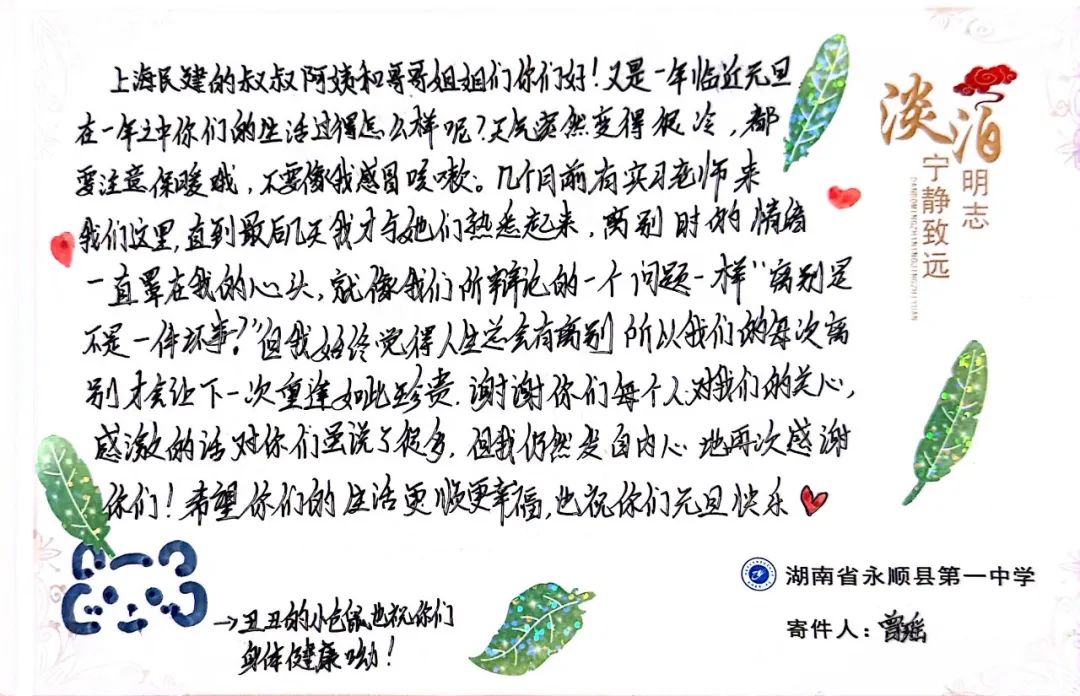 上海民建的叔叔阿姨和哥哥姐姐们你们好！又是一年临近元旦
在一年之中你们的生活过得怎么样呢？天气突然变得很冷，都
要注意保暖哦，不要像我感冒咳嗽。几个月前有实习老师来
我们这里，直到最后几天我才与她们熟悉起来，离别时的情绪
一直罩在我的心头，就像我们所辩论的一个问题一样“离别是
不是一件坏事？”但我始终觉得人生总会有离别 所以我们的每次离
别才会让下一次重逢如此珍贵．谢谢你们每个人对我们的关心，
感激的话对你们虽说了很多，但我仍然发自内心地再次感谢
你们！希望你们的生活更顺更幸福，也祝你们元旦快乐
→丑丑的小包鼠也祝你们
身体健康呦！
淡泊
明志
宁静致远
DANBOMINGZHININGJINGZHIYUAN
湖南省永顺县第一中学
寄件人：曾瑶